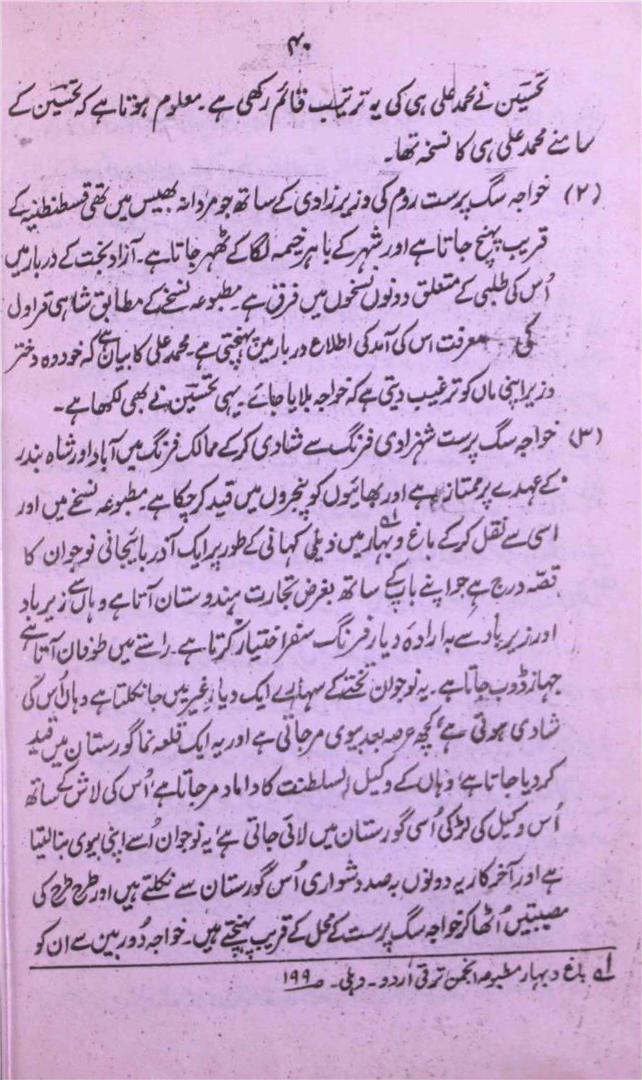 ۴۰
تحسین نے محمد علی ہی کی یہ ترتیب قائم رکھی ہے۔ معلوم ہوتا ہے کہ تحسین کے
سامنے محمد علی ہی کا نسخہ تھا۔
(۲) خواجہ سگ پرست روم کی وزیر زادی کے ساتھ جو مردانہ بھیس میں تھی قسطنطنیہ کے
قریب پہنچ جاتا ہے اور شہر کے باہر خیمہ لگا کے ٹھہر جاتا ہے۔ آزاد بخت کے دربار میں
اُس کی طلبی کے متعلق دونوں نسخوں میں فرق ہے۔ مطبوعہ نسخے کے مطابق شاہی قراول
کی معرفت اس کی آمد کی اطلاع دربار میں پہنچتی ہے۔ محمد علی کا بیان ہے کہ خود وہ دختر
وزیر اپنی ماں کو ترغیب دیتی ہے کہ خواجہ بلایا جائے۔ یہی تحسین نے بھی لکھا ہے۔
(۳) خواجہ سگ پرست شہزادی فرنگ سے شادی کر کے ممالک فرنگ میں آباد اور شاہ بندر
کے عہدے پر ممتاز ہے اور بھائیوں کو پنجروں میں قید کر چکا ہے۔ مطبوعہ نسخے میں اور
اسی سے نقل کر کے باغ و بہار میں ذیلی کہانی کے طور پر ایک آذر بائیجانی نوجوان کا
قصّہ درج ہے جو اپنے باپ کے ساتھ بغرض تجارت ہندوستان آتا ہے وہاں سے زیرباد
اور زیرباد سے بہ ارادہ دیار فرنگ سفر اختیار کرتا ہے۔ راستے میں طوفان آتا ہے
جہاز ڈوب جاتا ہے۔ یہ نوجوان تختے کے سہارے ایک دیار غیر میں جا نکلتا ہے وہاں اُس کی
شادی ہوتی ہے، کچھ عرصہ بعد بیوی مر جاتی ہے اور یہ ایک قلعہ نما گورستان میں قید
کر دیا جاتا ہے، وہاں کے وکیل السلطنت کا داماد مر جاتا ہے، اُس کی لاش کے ساتھ
اُس وکیل کی لڑکی اُسی گورستان میں لائی جاتی ہے، یہ نوجوان اُسے اپنی بیوی بنا لیتا
ہے اور آخر کار یہ دونوں بہ صد دشواری اُس گورستان سے نکلتے ہیں اور طرح طرح کی
مصیبتیں اُٹھا کر خواجہ سگ پرست کے محل کے قریب پہنچتے ہیں۔ خواجہ دُور بین سے ان کو
لہ باغ و بہار مطبوعہ انجمن ترقی اردو۔ دہلی۔ ص ۱۹۹